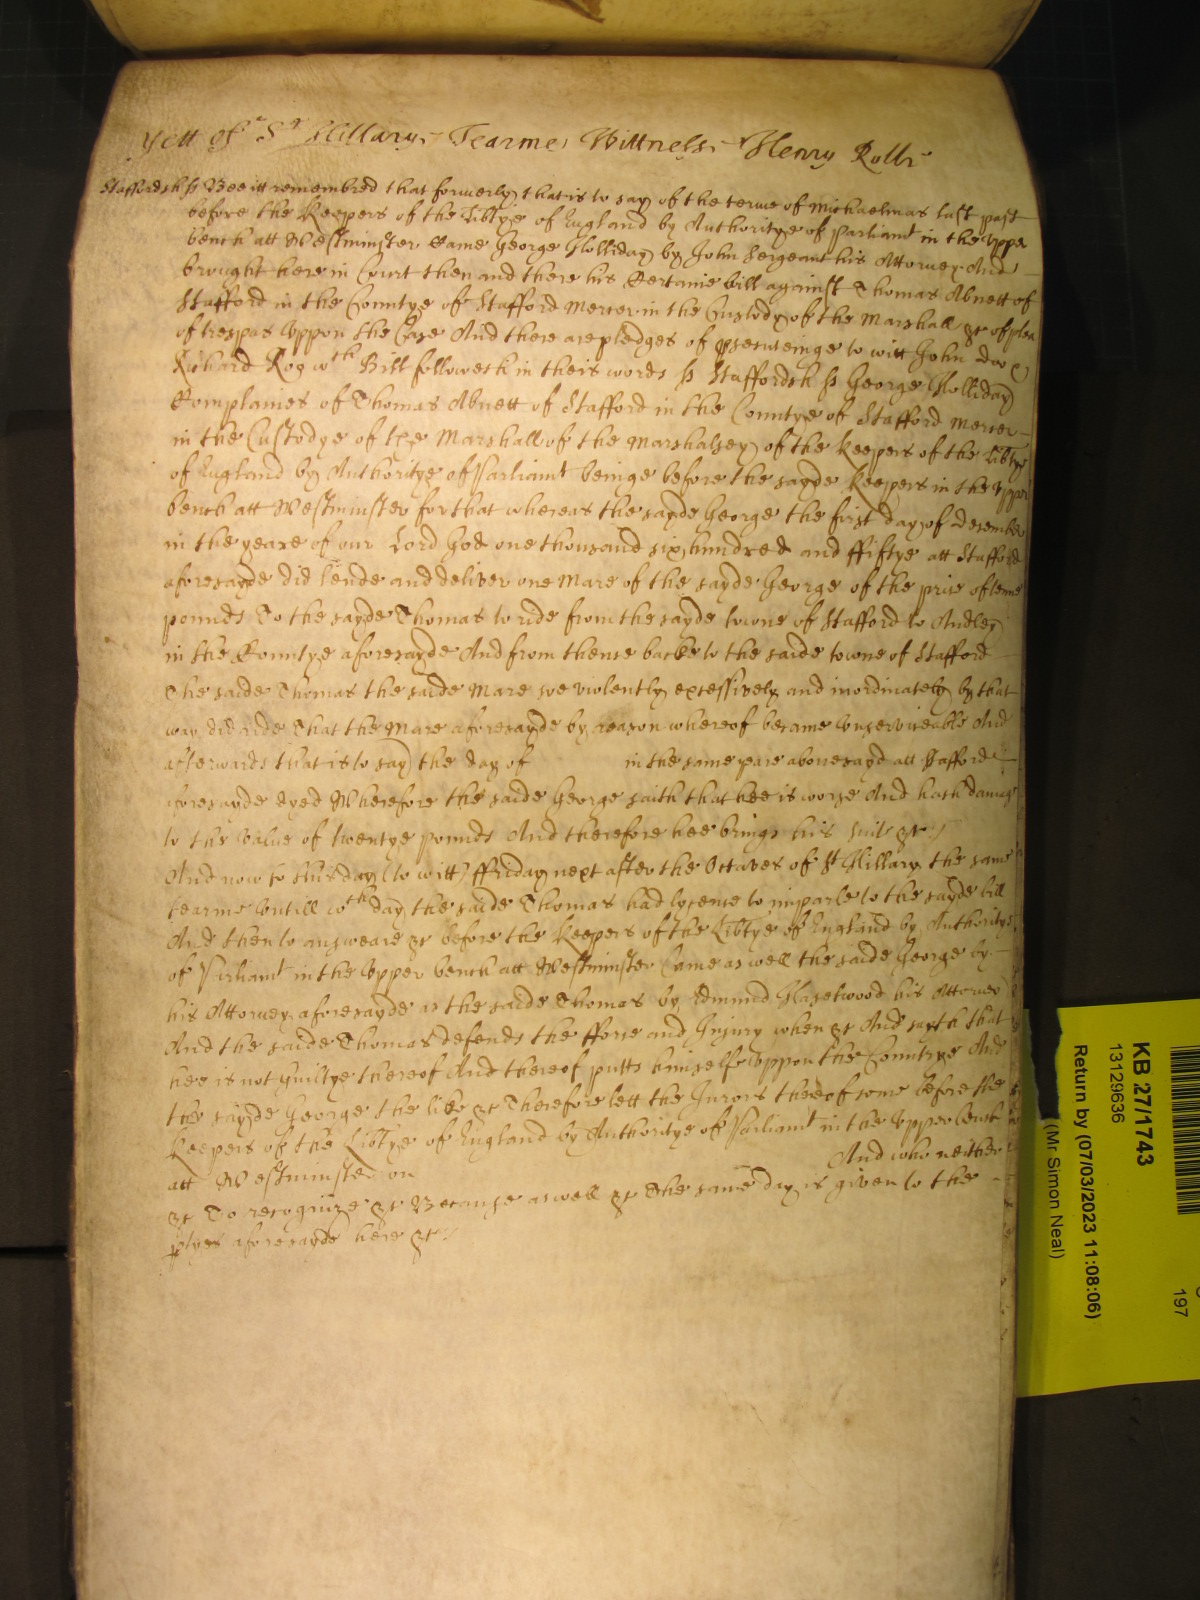 Yett of St Hillary Tearme Wittness Henry Rolle
Staffordsh ss Bee itt remembred that formerly that is to say of the terme of Michaelmas last past
before the Keepers of the Libtye of England by Authoritye of Parliamt in the Upper
bench att Westminster Came George Holliday by John Sergeant his Attorney And
brought here in Court then and there his Certaine bill against Thomas Abnett of
Stafford in the Countye of Stafford Mercer in the Custody of the Marshall &c of plea
of trespas Uppon the Case And there are pledges of psecuteinge to witt John Doo &
Richard Roo wch Bill followeth in theis words ss Staffordsh ss George Holliday
Complaines of Thomas Abnett of Stafford in the Countye of Stafford Mercer
in the Custodye of the Marshall of the Marshalsey of the Keepers of the Libtye
of England by Authoritye of Parliamt beinge before the sayde Keepers in the Upper
bench att Westminster for that whereas the sayde George the first day of December
in the yeare of our Lord God one thousand six hundred and ffiftye att Stafford
aforesayde did lende and deliver one Mare of the sayde George of the price of tenne
pounds To the sayde Thomas to ride from the sayde towne of Stafford to Audley
in the Countye aforesayde And from thence backe to the saide towne of Stafford
The saide Thomas the saide Mare soe violently excessively and inordinately by that
way did ride That the Mare aforesayde by reason whereof became Unserviceable And
afterwards that is to say the day of in the same yeare abovesayd att Stafford
aforesayde dyed Wherefore the saide George saith that hee is worse And hath damage
to the value of twentye pounds And therefore hee brings his suit &c
And now to this day (to witt) ffriday next after the Octaves of St Hillary the same
tearme Untill wch day the saide Thomas had lycense to imparle to the sayde bill
And then to answeare &c before the Keepers of the Libtye of England by Authoritye
of Parliamt in the Upper bench att Westminster Came as well the saide George by
his Attorney aforesayde as the saide Thomas by Edmund Haselwood his Attorney
And the saide Thomas defends the fforce and Injury when &c And sayth that
hee is not Guiltye thereof And thereof putts himselfe Uppon the Countrye And
the sayde George the like &c Therefore lett the Jurors thereof come before the
Keepers of the Libtye of England by Authoritye of Parliamt in the Upper bench
att Westminster on And who neither
&c To recognize &c Because aswell &c The same day is given to the
ptyes aforesayde here &c
KB 27/1743
13129636
Return by (07/03/2023 11:08:06)
(Mr Simon Neal)
197